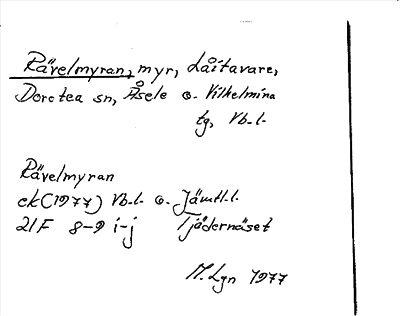 Rävelmyran, myr, Låitavare,
Dorotea sn, Åsele o. Vilhelmina
tg, Vb.l.
Rävelmyran
ek (1977) Vb.l. o. Jämtl.l.
21F 8-9 i-j Tjädernäset
M. Lgn 1977